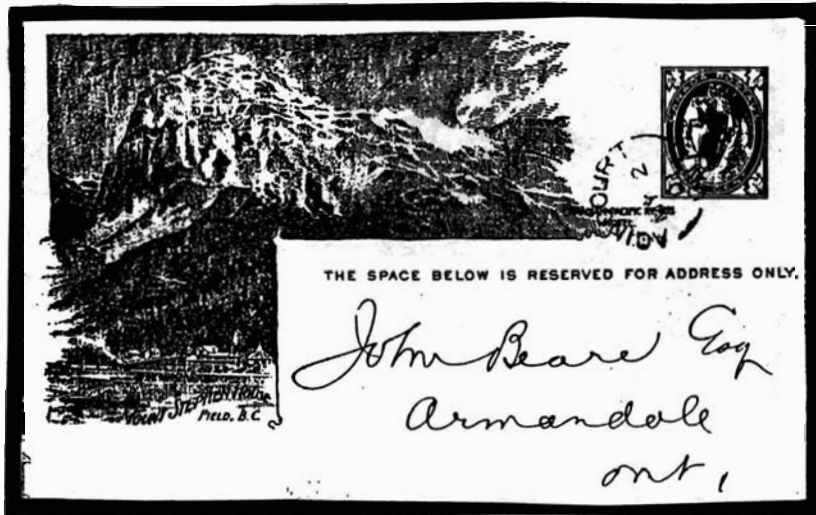 THE SPACE BELOW IS RESERVED FOR ADDRESS ONLY.
John Beare Esq
Armandale
Ont,
MOUNT STEPHEN HOUSE
FIELD, B.C.